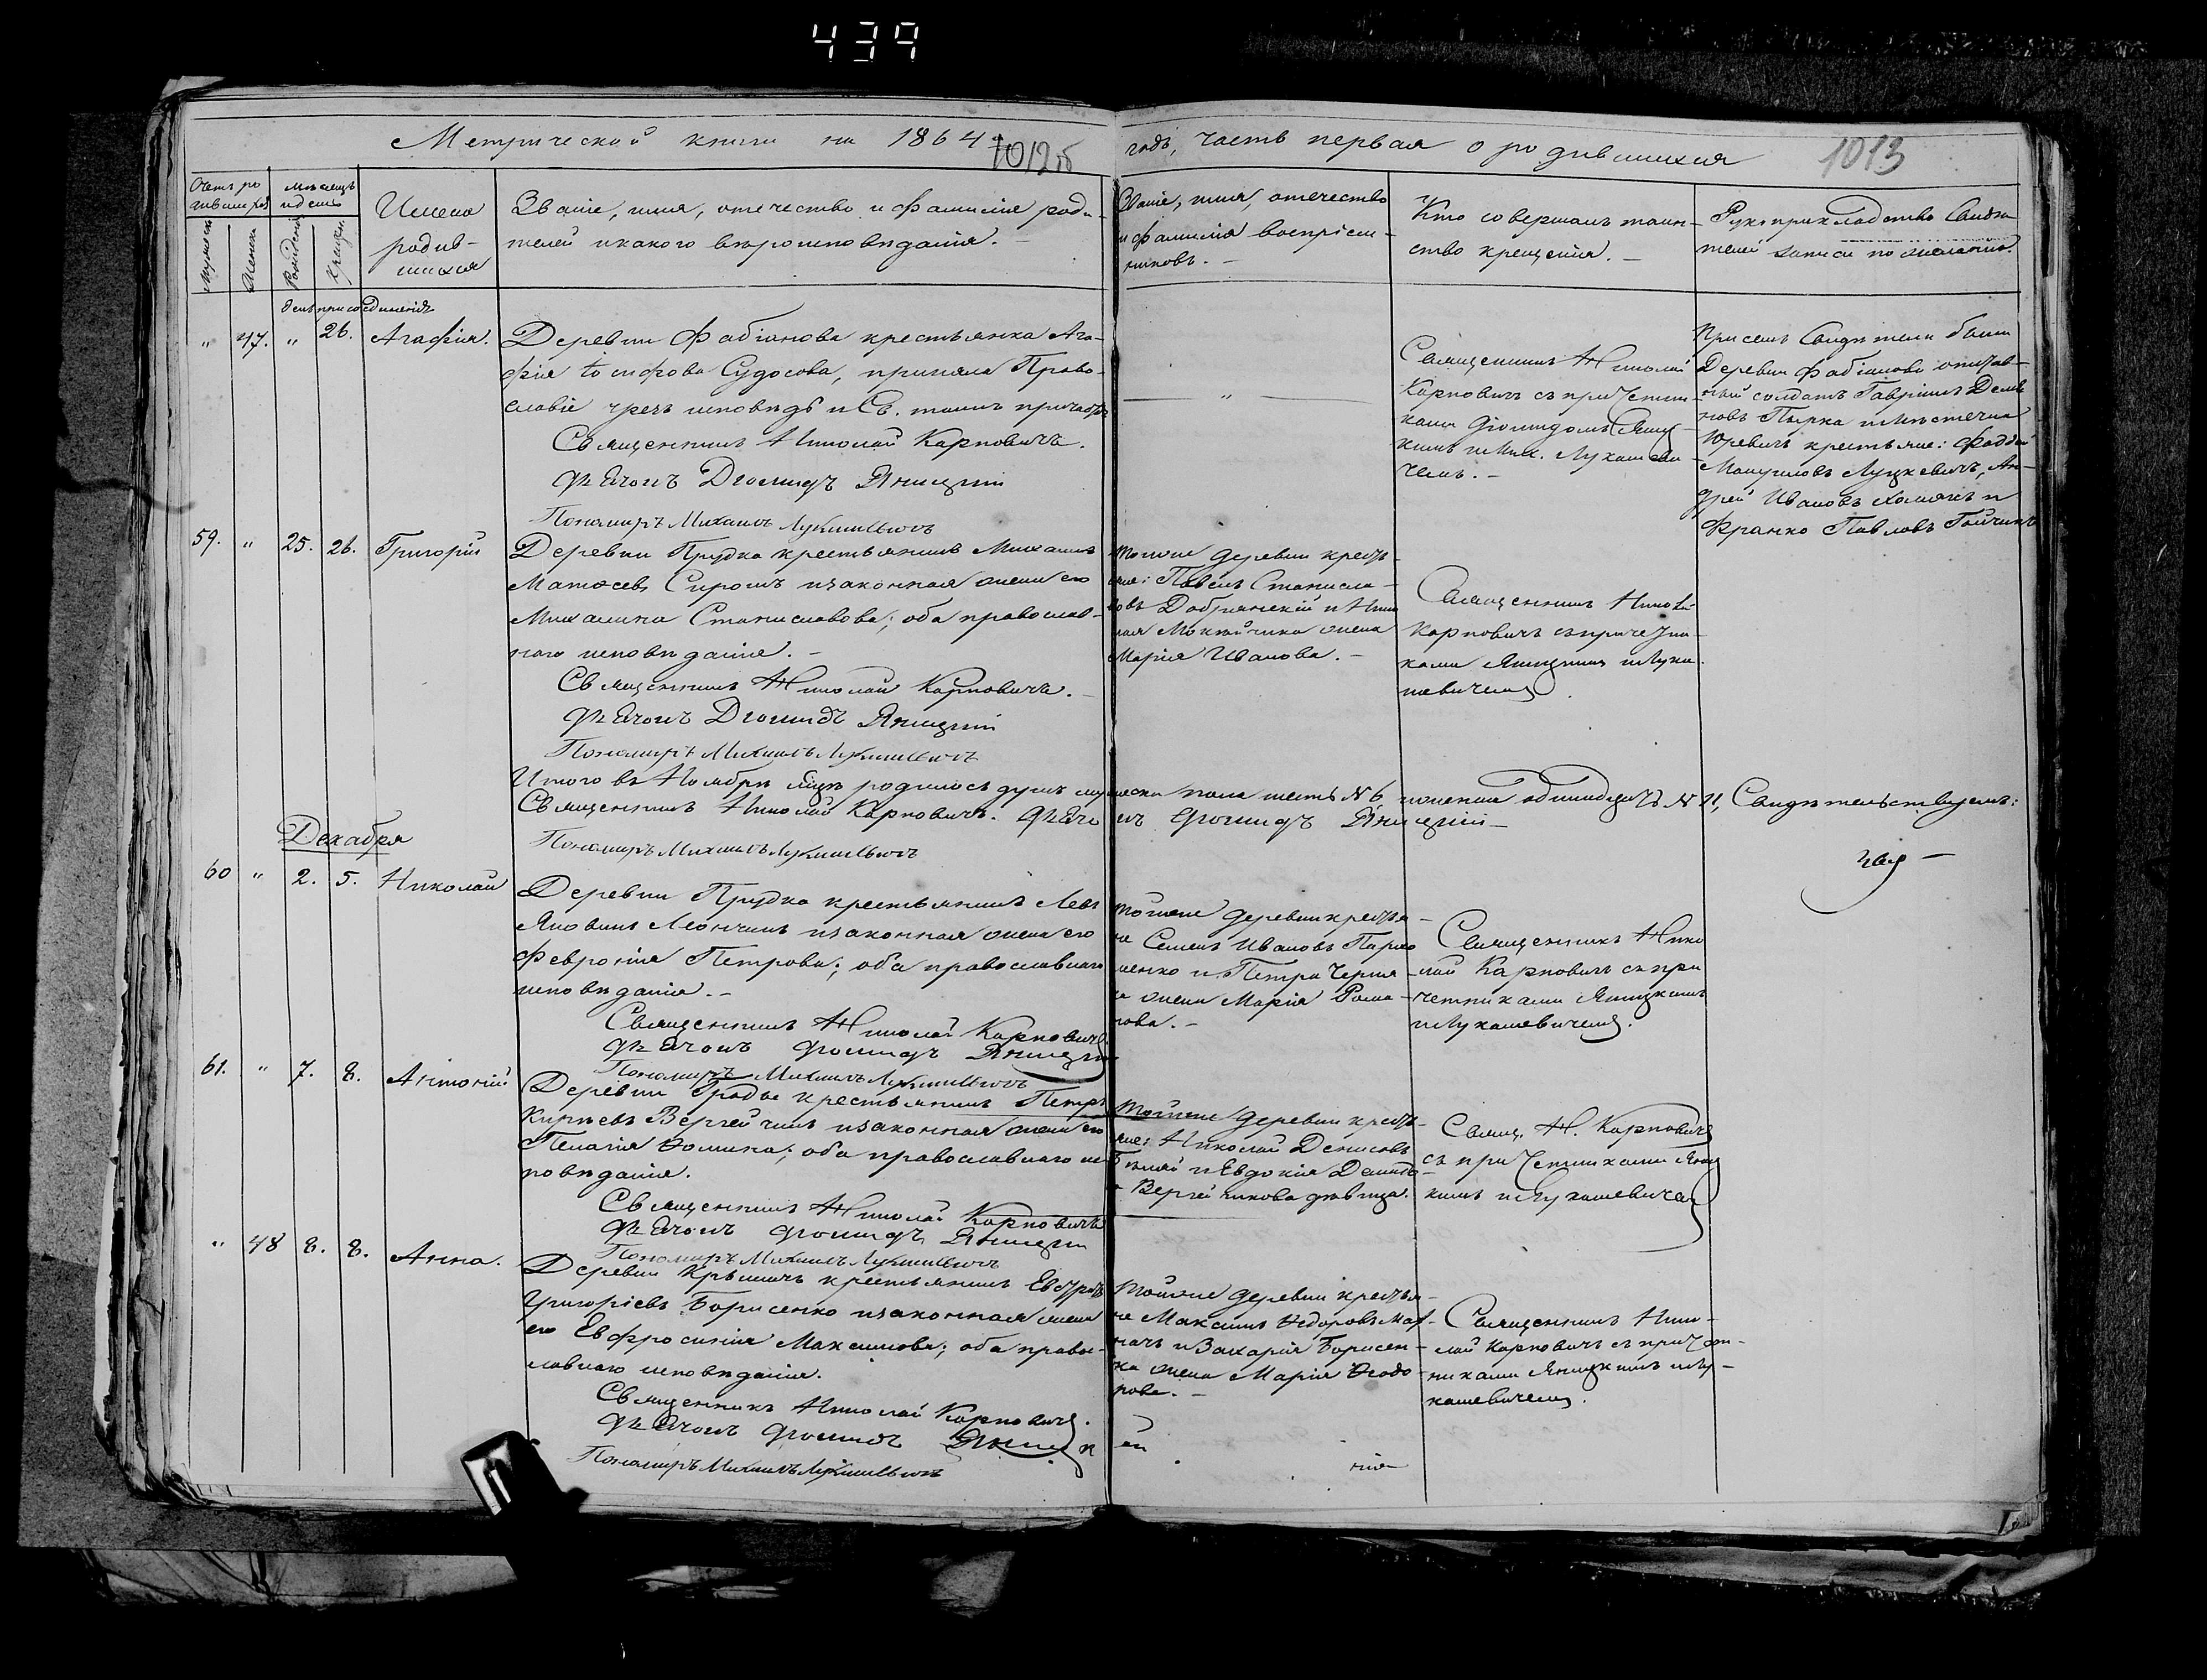 439
Метрической книги на 1864
1012об
годъ, часть первая о родившихся
1013
Счетъ ро
дившихся
мѣсяцъ
и день
Имена
родив-
шихся
Званіе, имя, отечество и фамилія роди-
телей и какого вѣроисповѣданія. -
Званіе, имя, отечество
и фамилія воспріем-
никовъ. -
Кто совершалъ таин-
ство крещенія. -
Рукоприкладство Свидѣ
телей записи по желанію.
Мужеска
Женск
Рожденія
Крещен.
день присоединенія
" 47. " 26. Агафія.
Деревни Фабіанова крестьянка Ага-
фія Іосифова Судосова, приняла Право-
славіе чрезъ исповѣдь и Св. таинъ
Священникъ Николай Карповичъ.
Дьячокъ Діомидъ Яницкій
Пономаръ Михаилъ Лукашевичъ
"
Священникъ Николай
Карповичъ съ причетни-
ками Діомидомъ Яниц
кимъ и Мих. Лукашеви
чемъ. -
При семъ Свидѣтели были
Деревни Фабіанова отстав-
ный солдатъ Гавріилъ
Пырка и мѣстечка
Юревичъ крестьяне: Фаддей
Луцкевичъ, Ан-
дрей Ивановъ и
Франко Павловъ
59. " 25. 26. Григорій
Деревни Прудка крестьянинъ Михаилъ
Матѳеевъ и законная жена его
Михалина Станиславова; оба православ-
наго исповѣданія. -
Священникъ Николай Карповичъ. -
Дьячокъ Діомидъ Яницкій
Пономаръ Михаилъ Лукашевичъ
тойже деревни кресть-
яне: Павелъ Станисла-
вовъ Добрянскій и Нико
лая жена
Марія Иванова. -
Священникъ Николай
Карповичъ съ причетни-
ками Яницкимъ и Лука-
шевичемъ.
Итого въ Ноябрѣ мѣцѣ родилось душъ мужеска пола шесть №6, женска одинадцать №11, Свидѣтельствуемъ:
Священникъ Николай Карповичъ. Дьячокъ Діомидъ Яницкій -
Пономаръ Михаилъ Лукашевичъ
Декабря
60 " 2. 5. Николай
Деревни Прудка крестьянинъ Левъ
Яковлевъ и законная жена его
Февронія Петрова; оба православнаго
исповѣданія. -
Священникъ Николай Карповичъ
Дьячокъ Діомидъ Яницкій
Пономаръ Михаилъ Лукашевичъ
тойже деревни крестья-
не Семенъ Ивановъ Пархо
менко и Петра
жена Марія Рома-
нова. -
Священникъ Нико
лай Карповичъ съ при
четниками Яницкимъ
и Лукашевичемъ.
61. " 7. 8. Антоній
Деревни крестьянинъ Петръ
Вергейчикъ и законная жена его
Пелагія Ѳомина; оба православнаго ис
повѣданія.
Священникъ Николай Карповичъ
Дьячокъ Діомидъ Яницкій
Пономаръ Михаилъ Лукашевичъ
тойже деревни кресть-
яне: Николай Денисовъ
и Евдокія
Вергейчикова дѣвица.
Свящ. Н. Карповичъ
съ причетниками Яниц
кимъ и Лукашевичемъ
" 48 8. 8. Анна.
Деревни Крышичъ крестьянинъ
Григоріевъ Борисенко и законная жена
его Евфросинія Максимова; оба право-
славнаго исповѣданія.
Священникъ Николай Карповичъ.
Дьячокъ Діомидъ Яницкій
Пономаръ Михаилъ Лукашевичъ
тойже деревни крестья-
не Максимъ Ѳедоровъ
и Захарія Борисен-
ка жена Марія Ѳеодо-
рова. -
Священникъ Нико-
лай Карповичъ съ причет-
никами Яницкимъ и Лу-
кашевичемъ.